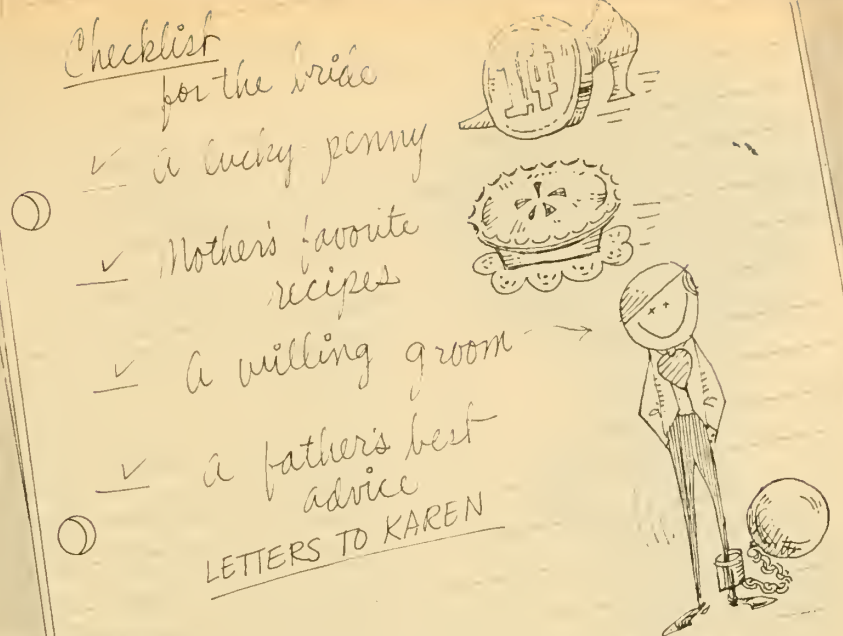 Checklist
for the bride
14
✓ a lucky penny
✓ Mother's favorite
recipes
✓ a willing groom
✓ a father's best
advice
LETTERS TO KAREN